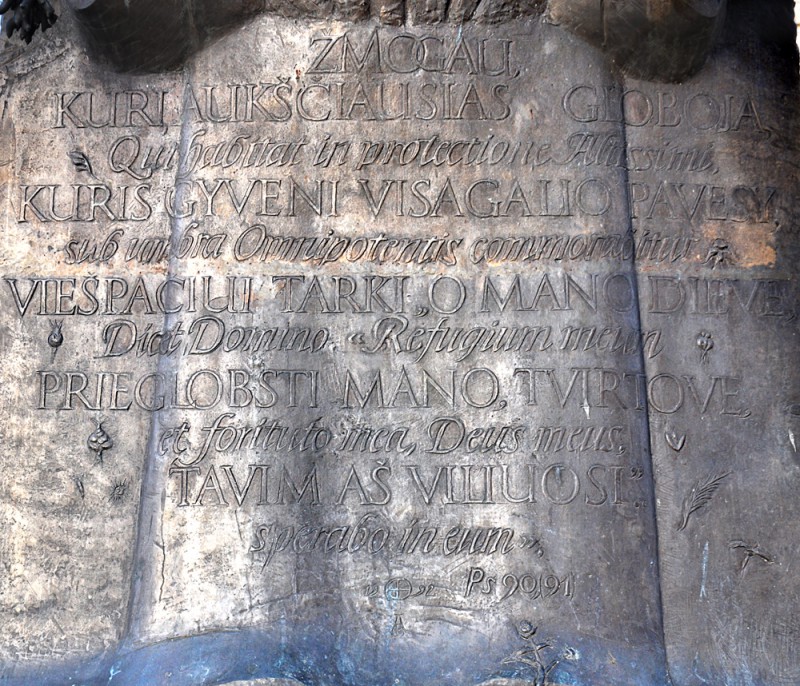 ŽMOGAU,
KURĮ AUKŠČIAUSIAS GLOBOJA,
Qui habitat in protectione Altissimi,
KURIS GYVENI VISAGALIO PAVĖSY,
sub umbra Omnipotentis commorabitur
VIEŠPAČIUI TARKI „O MANO DIEVE,
Dicet Domino: «Refugium meum
PRIEGLOBSTI MANO, TVIRTOVE,
et fortituto mea, Deus meus,
TAVIM AŠ VILIUOSI”.
sperabo in eum».
Ps 90,91